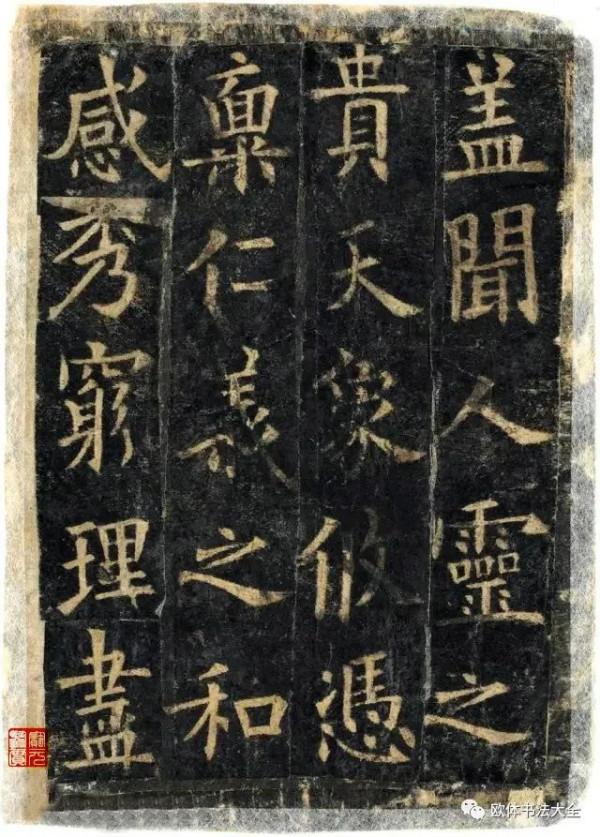 盖聞人靈之
貴天象攸憑
稟仁義之和
感秀窮理盡
欧体书法大全